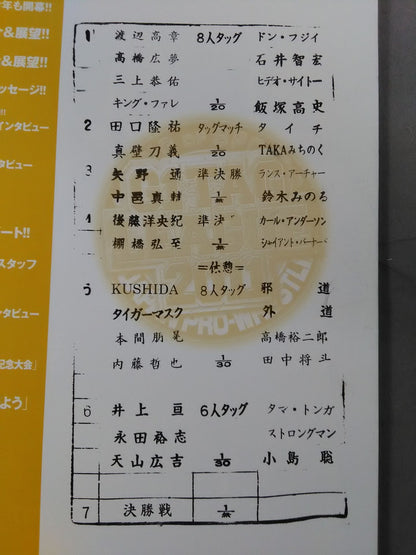 年も開幕!!
&展望!!
&展望!!
ッセージ!!
!!
インタビュー
タビュー
ート!!
スタッフ
ンタビュー
記念大会」
よう」
1 渡辺高章 8人タッグ ドン・フジイ
高橋広夢 石井智宏
三上恭佑 ヒデオ・サイトー
キング・ファレ 1/20 飯塚高史
2 田口隆祐 タッグマッチ タイチ
真壁刀義 1/20 TAKAみちのく
3 矢野通 準決勝 ランス・アーチャー
中邑真輔 1/無 鈴木みのる
4 後藤洋央紀 準決勝 カール・アンダーソン
棚橋弘至 1/無 ジャイアント・バーナード
=休憩=
5 KUSHIDA 8人タッグ 邪道
タイガーマスク 外道
本間朋晃 高橋裕二郎
内藤哲也 1/30 田中将斗
6 井上亘 6人タッグ タマ・トンガ
永田裕志 ストロングマン
天山広吉 1/30 小島聡
7 決勝戦 1/無